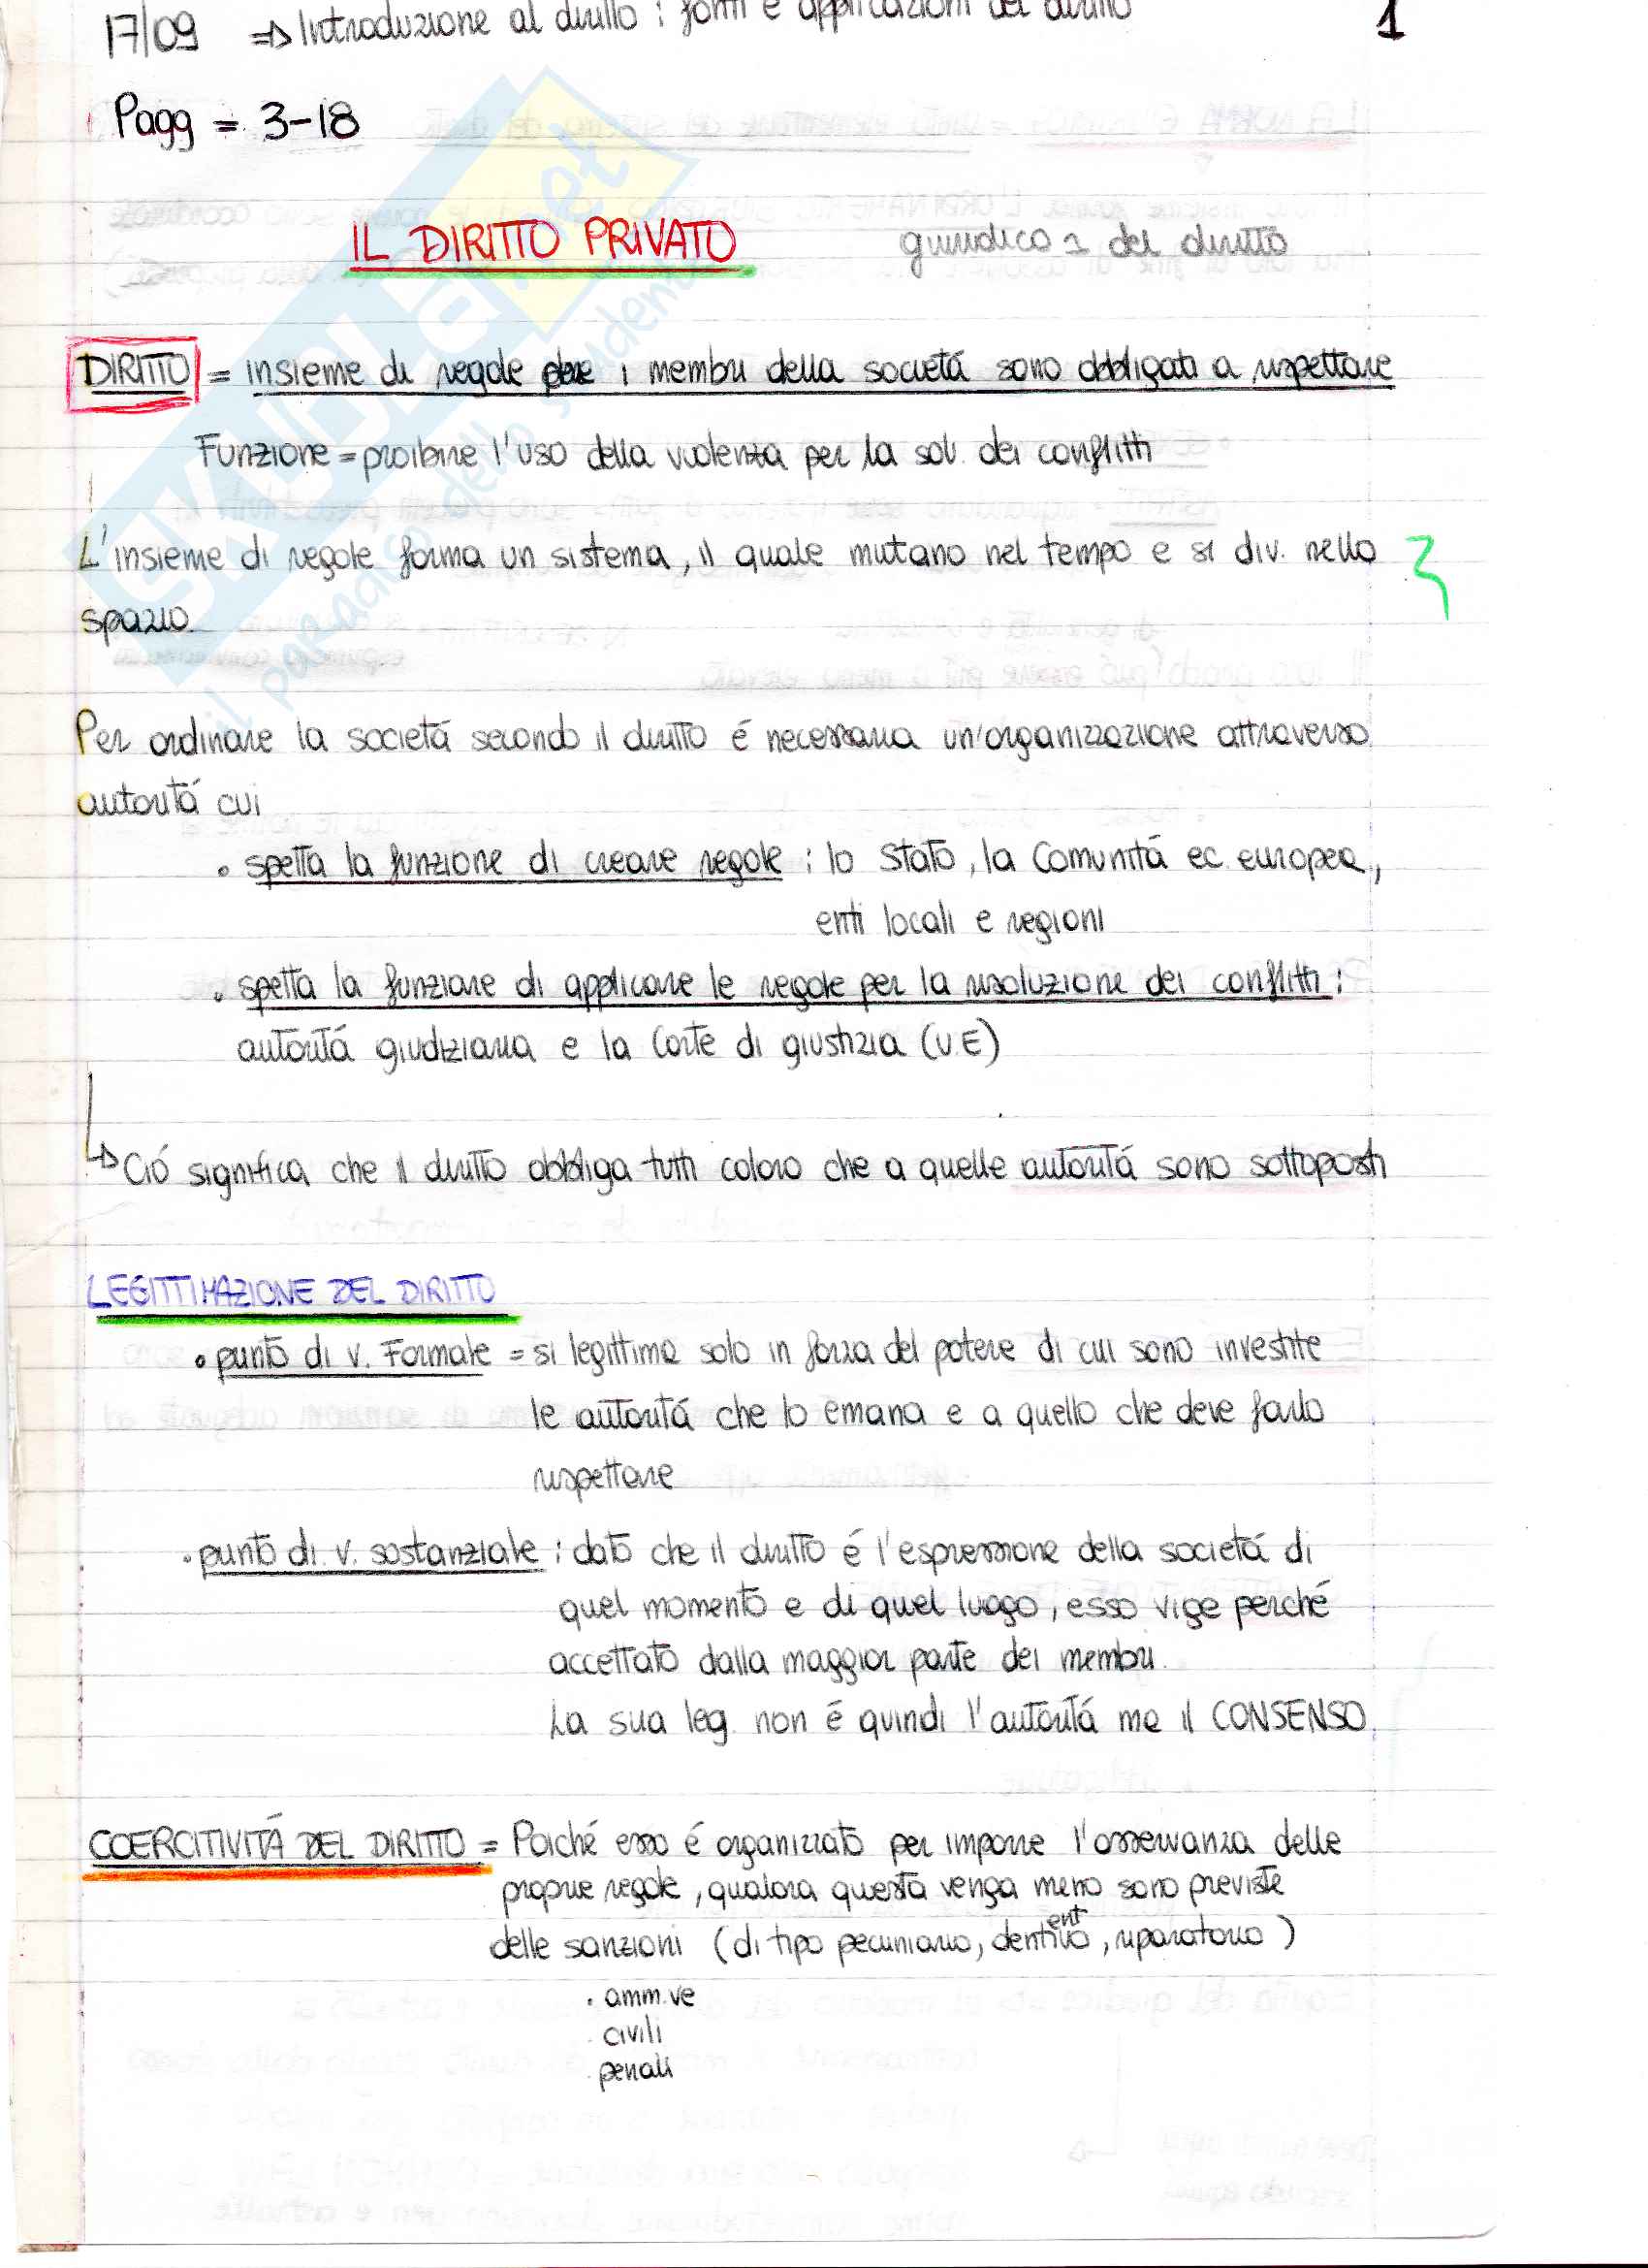 17/09 => Introduzione al diritto : fonti e applicazioni del diritto 1
Pagg = 3-18
IL DIRITTO PRIVATO giuridico del diritto
DIRITTO = insieme di regole che i membri della societá sono obbligati a rispettare
Funzione = proibire l'uso della violenza per la sol. dei conflitti
L'insieme di regole forma un sistema, il quale mutano nel tempo e si div. nello
spazio.
Per ordinare la societá secondo il diritto é necessaria un'organizzazione attraverso
autoritá cui
• spetta la funzione di creare regole : lo Stato, la Comunitá ec. europea,
enti locali e regioni
• spetta la funzione di applicare le regole per la risoluzione dei conflitti :
autoritá giudiziaria e la Corte di giustizia (U.E)
↳ Ció significa che il diritto obbliga tutti coloro che a quelle autoritá sono sottoposti
LEGITTIMAZIONE DEL DIRITTO
• punto di v. Formale = si legittima solo in forza del potere di cui sono investite
le autoritá che lo emana e a quello che deve farlo
rispettare
• punto di v. sostanziale : dato che il diritto é l'espressione della societá di
quel momento e di quel luogo, esso vige perché
accettato dalla maggior parte dei membri.
La sua leg. non é quindi l'autoritá ma il CONSENSO.
COERCITIVITÁ DEL DIRITTO = Poiché esso é organizzato per imporre l'osservanza delle
proprie regole, qualora questa venga meno sono previste
delle sanzioni (di tipo pecuniario, dententivo, riparatorio)
• amm.ve
. civili
. penali
SKUOLA.net
il paradiso dello studente